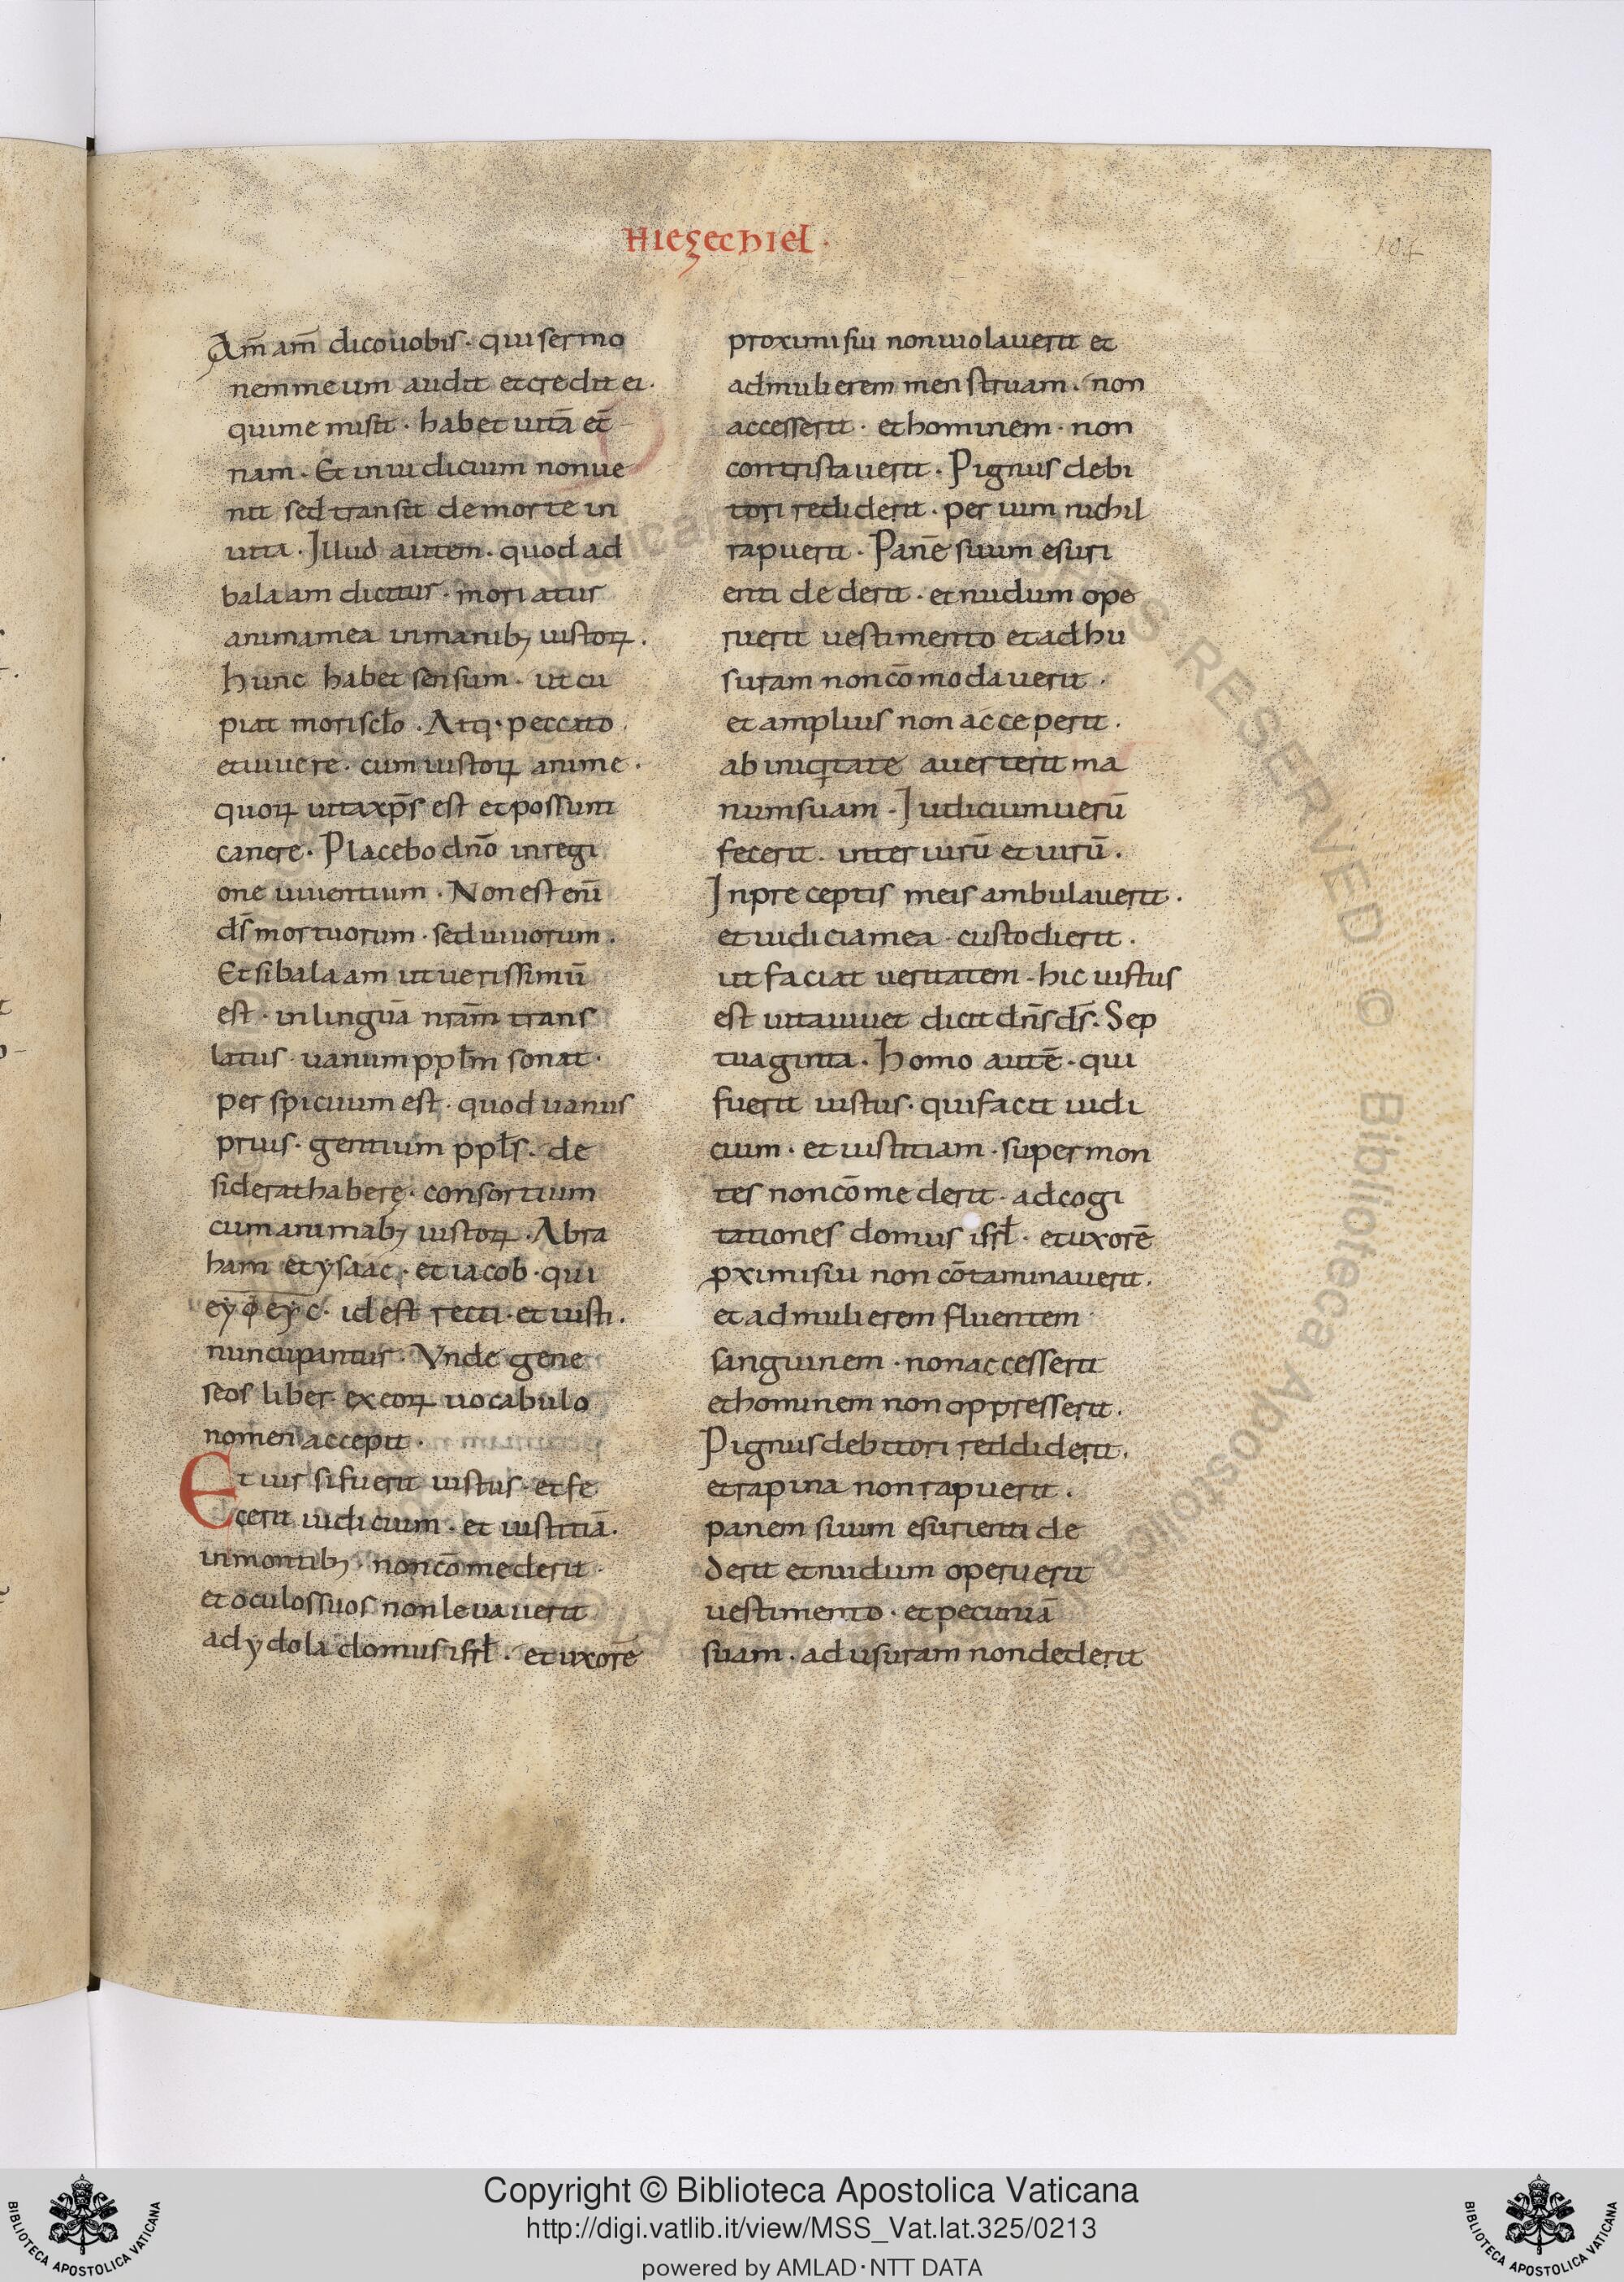 hiezechiel·
104
Am̅ am̅ dico uobis· qui sermo
nem meum audit et credit ei·
qui me misit· habet uitā et̅
nam· Et in iudicium non ue
nit sed transit de morte in
uita· Illud autem· quod ad
balaam dicitur· moriatur
anima mea in manibꝫ iustoꝝ·
hunc habet sensum· ut cu
piat mori scl̅o· Atq· peccato
et uiuere· cum iustoꝝ anime·
quoꝝ uita xp̅s est et possunt
canere· Placebo dn̅o in regi
one uiuentium· Non est eni̅
ds̅ mortuorum· sed uiuorum·
Et si balaam ut uerissimū
est· in linguā nr̅am̅ trans
latus· uanum ppl̅m sonat·
perspicuum est· quod uanus
prius· gentium ppl̅s· de
siderat habere· consortium
cum animabꝫ iustoꝝ· Abra
ham et ysaac· et iacob· qui
eyθeyc· id est recti· et iusti·
nuncupantur· Vnde gene
seos liber ex eoꝝ uocabulo
nomen accepit·
Et uir si fuerit iustus· et fe
cerit iudicium· et iustitiā·
in montibꝫ· non cōmederit·
et oculos suos non leuauerit
ad ydola domus isrl̅· et uxorē
proximi sui non uiolauerit et
ad mulierem menstruam· non
accesserit· et hominem· non
contristauerit· Pignus debi
tori rediderit· per uim nichil
rapuerit· Panē suum esuri
enti dederit· et nudum ope
ruerit uestimento et adhu
suram non cōmodauerit·
et amplius non acceperit·
ab iniqitate auerterit ma
num suam· Iudicium uerū
fecerit· inter uirū et uirū·
In preceptis meis ambulauerit·
et iudicia mea· custodierit·
ut faciat ueritatem· hic iustus
est uita uiuet dicit dn̅s ds̅· Sep
tuaginta· homo autē· qui
fuerit iustus· qui facit iudi
cium· et iustitiam· super mon
tes non cōmederit· ad cogi
tationes domus isrl̅· et uxorē
ꝓximi sui non cōtaminauerit·
et ad mulierem fluentem
sanguinem· non accesserit
et hominem non oppresserit·
Pignus debitori reddiderit·
et rapina non rapuerit·
panem suum esurienti de
derit et nudum operuerit
uestimento· et pecuniā
suam· ad usuram non dederit
RESERVED © Biblioteca Apostolica
Copyright © Biblioteca Apostolica Vaticana
http://digi.vatlib.it/view/MSS_Vat.lat.325/0213
powered by AMLAD·NTT DATA
BIBLIOTECA APOSTOLICA VATICANA
BIBLIOTECA APOSTOLICA VATICANA